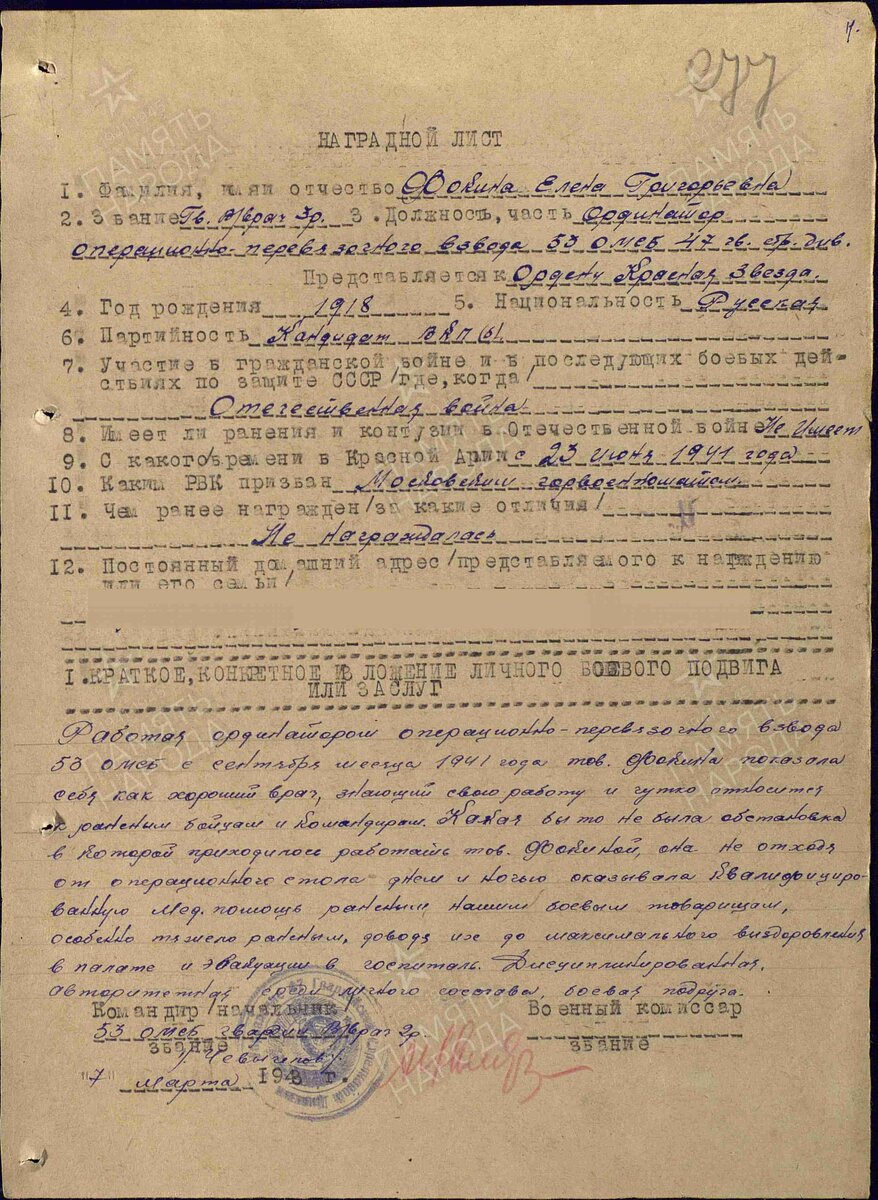 277
НАГРАДНОЙ ЛИСТ
1. Фамилия, имяи отчество Фокина Елена Григорьевна
2. Звание Гв. В/врач 3р. 3. Должность, часть Ординатор
операционно-перевязочного взвода 53 ОМСБ 47 гв. стр. див.
Представляется к Ордену Красная Звезда.
4. Год рождения 1918 5. Национальность Русская
6. Партийность Кандидат ВКП(б).
7. Участие в гражданской войне и в последующих боевых дей-
ствиях по защите СССР/где, когда/
Отечественная война
8. Имеет ли ранения и контузии в Отечественной войне Не имеет
9. С какого/времени в Красной Армии с 23 июня 1941 года
10. Каким РВК призван Московским горвоенкоматом
11. Чем ранее награжден/за какие отличия/
Не награждалась
12. Постоянный домашний адрес/представляемого к награждению
или его семьи/
I. КРАТКОЕ, КОНКРЕТНОЕ ИЗ ЛОЖЕНИЕ ЛИЧНОГО БОЕВОГО ПОДВИГА
ИЛИ ЗАСЛУГ
Работая ординатором операционно-перевязочного взвода
53 ОМСБ с сентября месяца 1941 года тов. Фокина показала
себя как хороший врач, знающий свою работу и чутко относится
к раненым бойцам и командирам. Какая бы то не была обстановка
в которой приходилось работать тов. Фокиной, она не отходя
от операционного стола днем и ночью оказывала квалифициро-
ванную мед. помощь раненым нашим боевым товарищам,
особенно тяжело раненым, доводя их до максимального выздоровления
в палате и эвакуации в госпиталь. Дисциплинированная,
авторитетная среди личного состава, боевая подруга.
Командир/начальник Военный комиссар
53 ОМСБ гвардии В/врач 2р.
звание звание
7 марта 1943 г.
ПАМЯТЬ НАРОДА